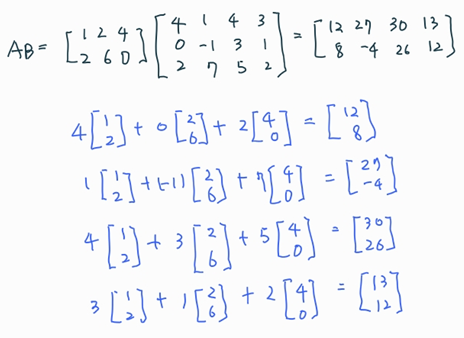 AB = [1 2 4; 2 6 0] [4 1 4 3; 0 -1 3 1; 2 7 5 2] = [12 27 30 13; 8 -4 26 12]
4[1; 2] + 0[2; 6] + 2[4; 0] = [12; 8]
1[1; 2] + (-1)[2; 6] + 7[4; 0] = [27; -4]
4[1; 2] + 3[2; 6] + 5[4; 0] = [30; 26]
3[1; 2] + 1[2; 6] + 2[4; 0] = [13; 12]